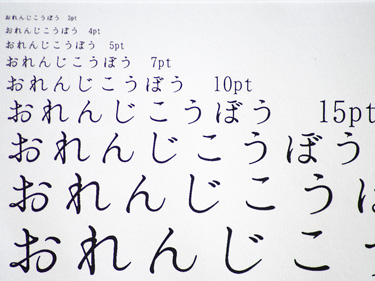 おれんじこうぼう 3pt
おれんじこうぼう 4pt
おれんじこうぼう 5pt
おれんじこうぼう 7pt
おれんじこうぼう 10pt
おれんじこうぼう 15pt
おれんじこうぼう
おれんじこう
おれんじこ